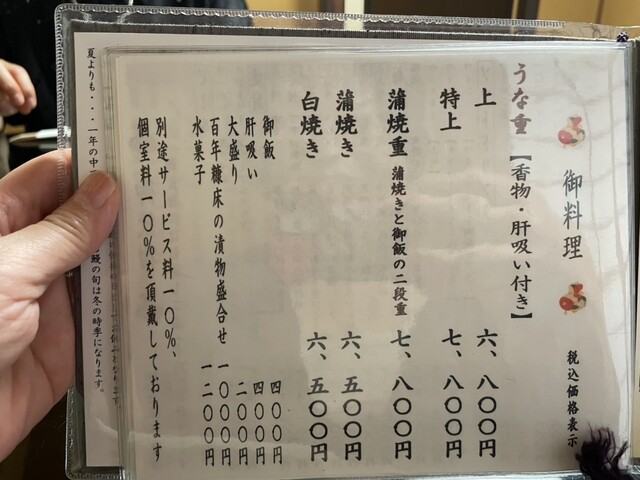 御料理
税込価格表示
うな重【香物・肝吸い付き】
上 六、八〇〇円
特上 七、八〇〇円
蒲焼重 蒲焼きと御飯の二段重 七、八〇〇円
蒲焼き 六、五〇〇円
白焼き 六、五〇〇円
御飯 四〇〇円
肝吸い 四〇〇円
大盛り 二〇〇円
百年糠床の漬物盛合せ 一〇〇〇円
水菓子 一二〇〇円
別途サービス料一〇%、
個室料一〇%を頂戴しております
夏よりも・・・一年の中
鰻の旬は冬の時季になります。